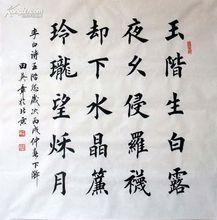 玉階生白露
夜久侵羅襪
却下水晶簾
玲瓏望秌月
李白詩玉階怨歲次丙戌仲春下澣
田英章於北京